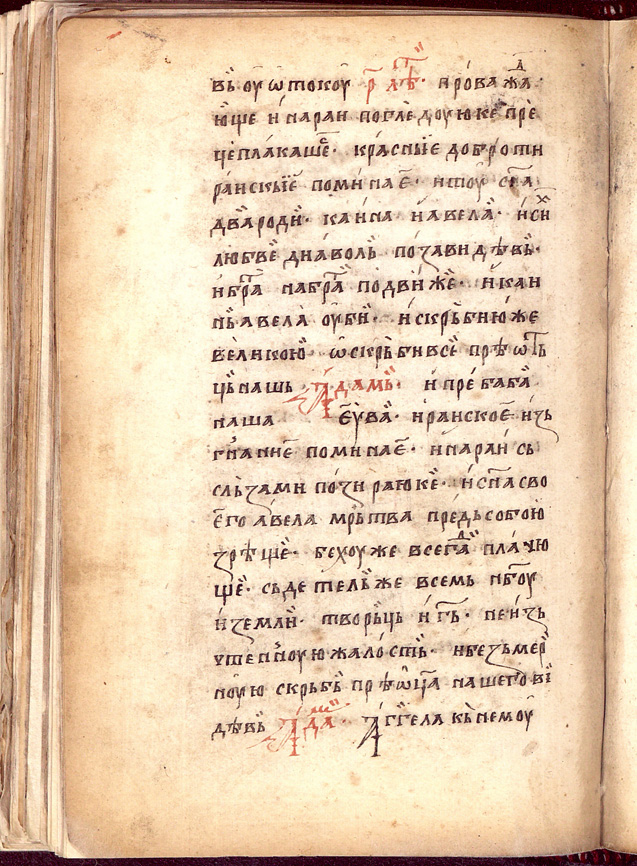 въ оу ѡтокоу р҃ лѣ҇т · проважⷣа
юще и на раи погледоующе прѣ
це плакашеⷭ · красныїе доброти
раискыїе поминае · и тоу сн҃а
два роди · каина и авела · и сиⷯ
любве дїаволь позавидѣвь ·
и браⷮа на браⷮа подвиже · и каи
нь авела оуби · и скрьбию же
великою ѡскрьби все прѣѡⷮь
ць нашь Адамь · и пребаба
наша еѵва · и раискоѥ изь
гнаниѥ поминаѥ · и на раи сь
сльзами позираюке · и сн҃а сво
ѥго авела мрьтва предь собою
зрѣще · бехоу же всегⷣа плачю
ще · сьдетель же всемь нб҃оу
и земли · творьць и г҃ь · неизь
утеноую жалость · и безьмер
ноую скрьбь прѣѡц҃а нашего ви
дѣвь Адаⷨ · Аггела кь немоу